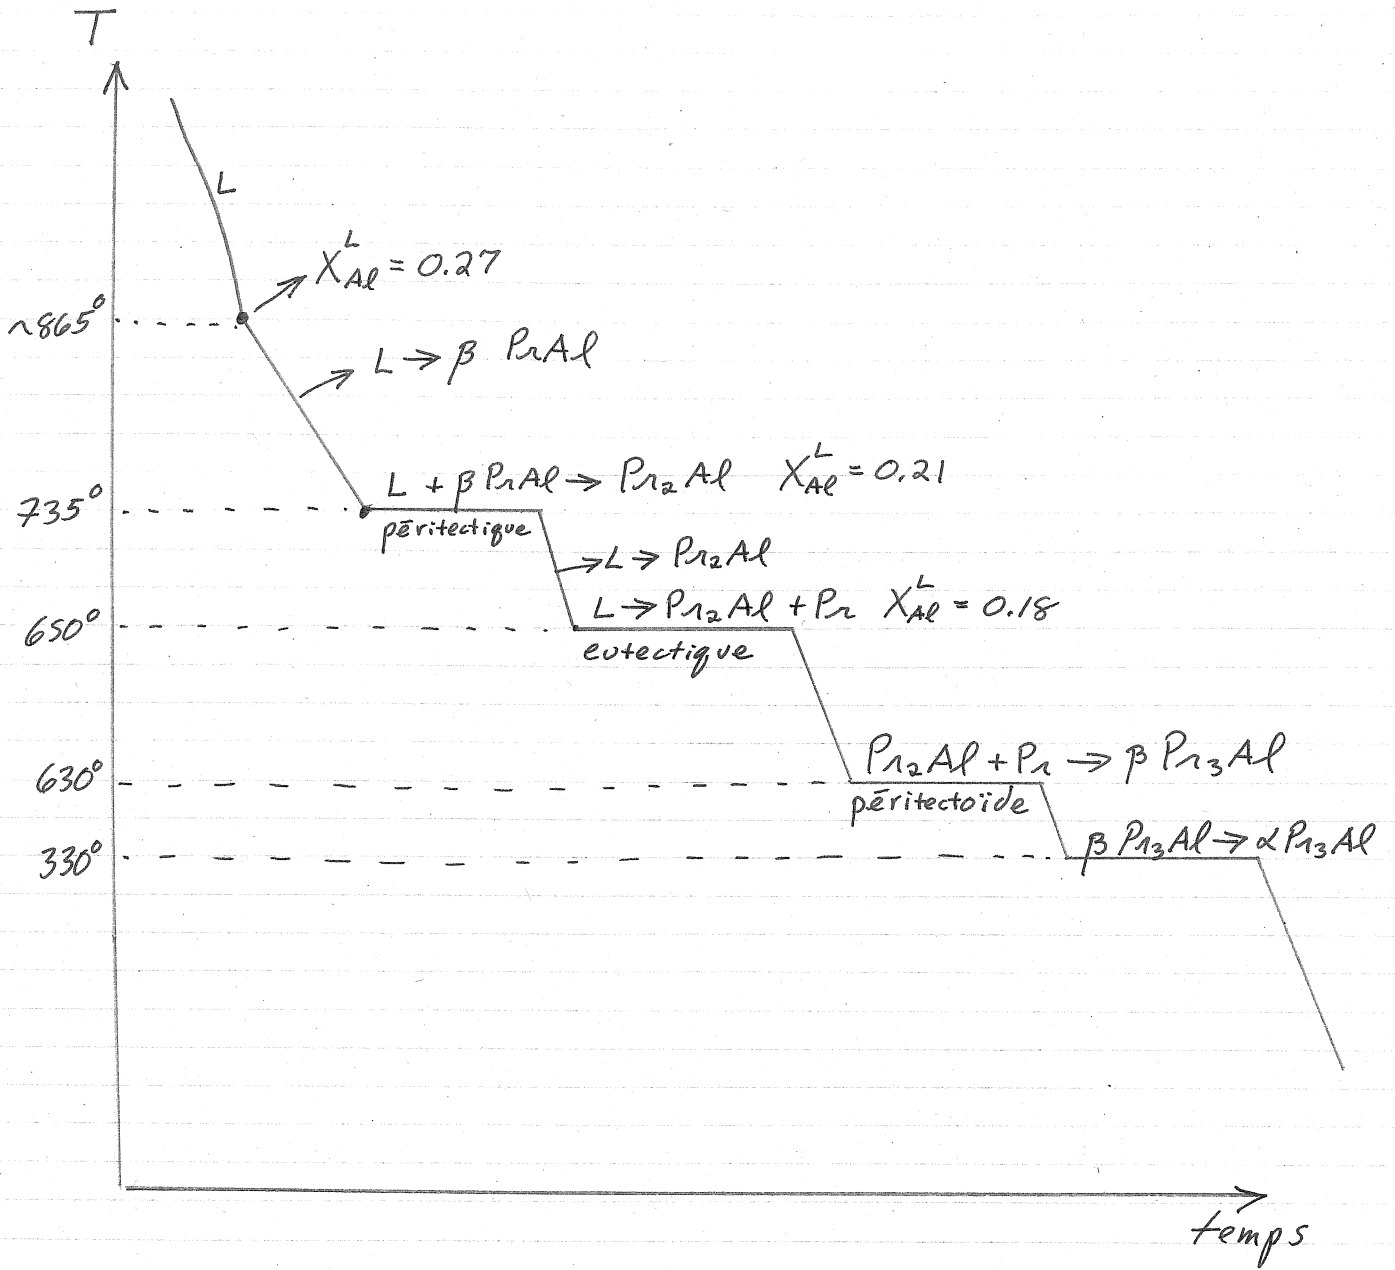 T
L
X^L_Al = 0.27
~865°
L → β PrAl
L + β PrAl → Pr₂Al X^L_Al = 0.21
735°
péritectique
→ L → Pr₂Al
L → Pr₂Al + Pr X^L_Al = 0.18
650°
eutectique
Pr₂Al + Pr → β Pr₃Al
630°
péritectoïde
β Pr₃Al → α Pr₃Al
330°
temps